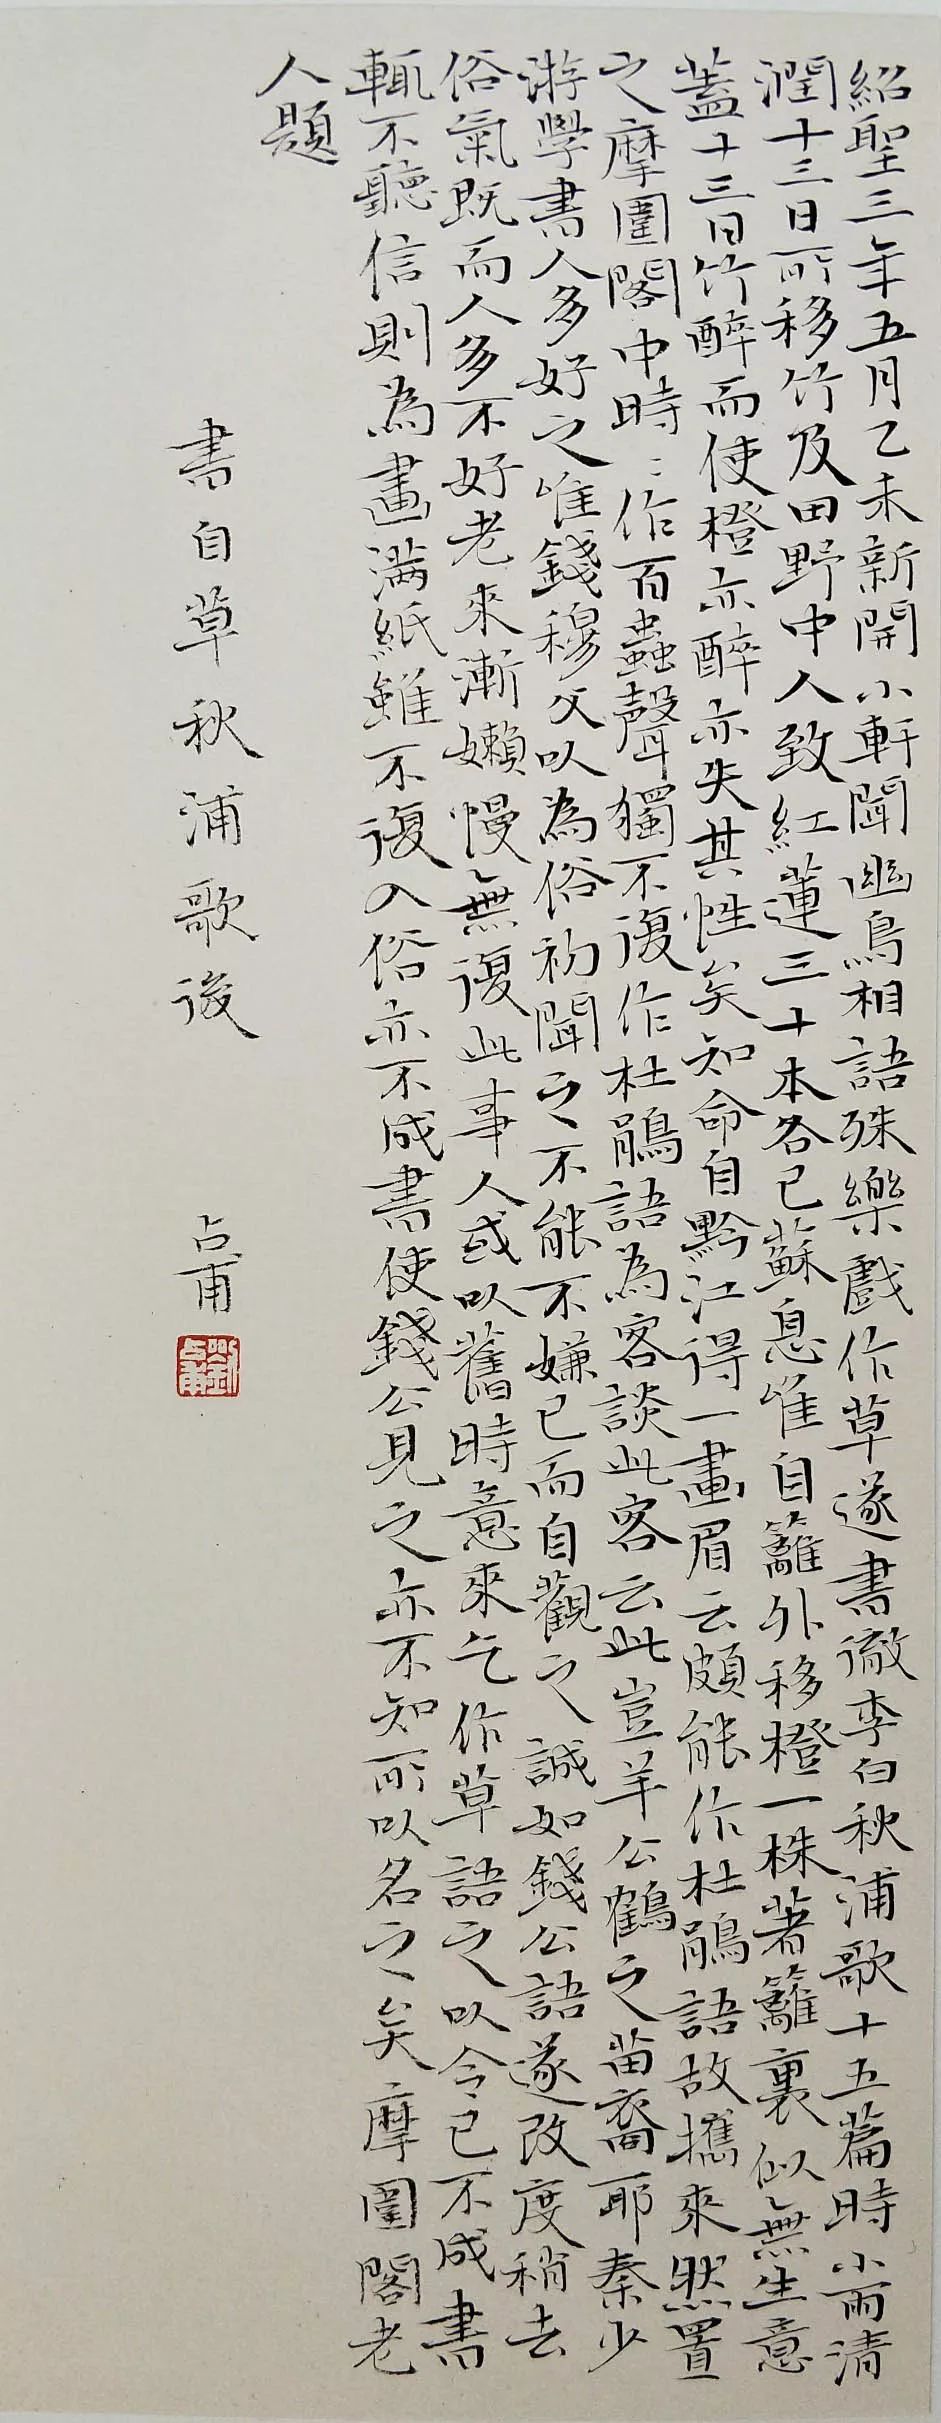 紹聖三年五月乙未新開小軒聞幽鳥相語殊樂戲作草遂書徹李白秋浦歌十五篇時小雨清
潤十三日所移竹及田野中人致紅蓮三十本各已蘇息唯自籬外移橙一株著籬裏似無生意
蓋十三日竹醉而使橙亦醉亦失其性矣知命自黔江得一畫眉云頗能作杜鵑語故攜來然置
之摩圍閣中時〻作百蟲聲獨不復作杜鵑語為客談此客云此豈羊公鶴之苗裔耶秦少
游學書人多好之唯錢穆父以為俗初聞之不能不嫌已而自觀之誠如錢公語遂改度稍去
俗氣既而人多不好老來漸嬾慢無復此事人或以舊時意來乞作草語之以今已不成書
輒不聽信則為畫滿紙雖不復入俗亦不成書使錢公見之亦不知所以名之矣摩圍閣老
人題
書自草秋浦歌後 占甫
劉占甫